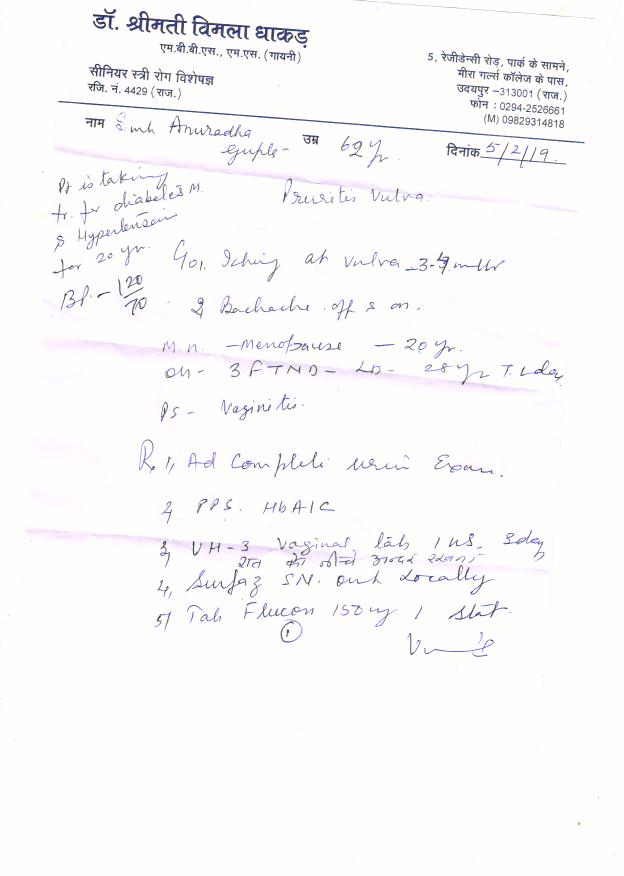 डॉ. श्रीमती विमला धाकड़
एम.बी.बी.एस., एम.एस. (गायनी)
सीनियर स्त्री रोग विशेषज्ञ
रजि. नं. 4429 (राज.)
5, रेजीडेन्सी रोड़, पार्क के सामने,
मीरा गर्ल्स कॉलेज के पास,
उदयपुर –313001 (राज.)
फोन : 0294-2526661
(M) 09829314818
नाम Smt Anuradha
Gupta-
उम्र 62 yr.
दिनांक 5/2/19.
Pt is taking
tr. for diabetes M.
& Hypertension
for 20 yr.
BP. - 120/70
Pruritis Vulva.
1, Iching at vulva
2, Backache off & on.
M.H. -Menopause - 20 yr.
OH- 3 FTND- LD- 28 yr
PS- Vaginitis.
R. 1, Ad Complete urin Exam.
2, PPS. HbA1C
3, VH-3 Vaginal tab 1 HS. 3day
रात को नीचे अन्दर रखना
4, Surfaz SN. oint Locally
5) Tab Flucon 150 mg 1 Stat.
1